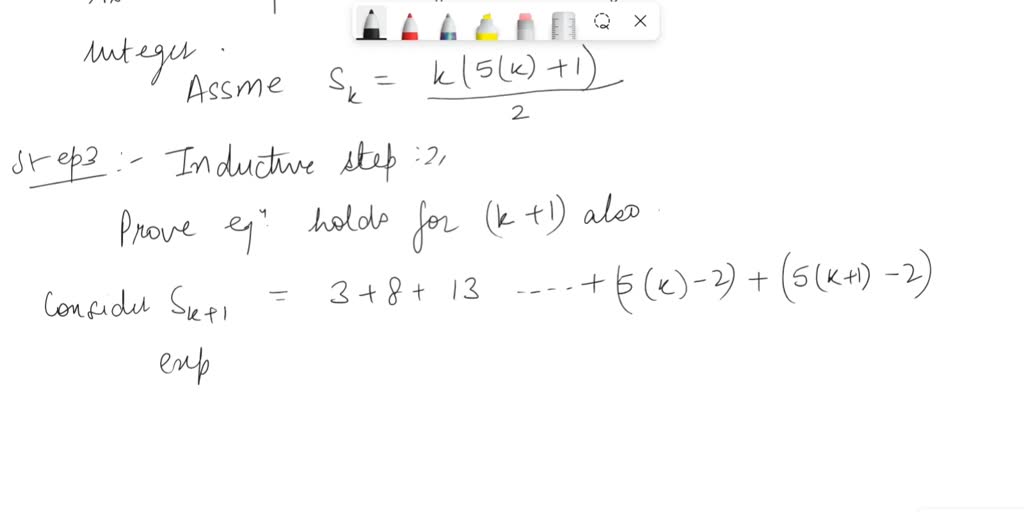 Integer.
Assme S_k = k(5(k)+1) / 2
Step3 :- Inductive step :-
Prove eqⁿ holds for (k+1) also.
Consider S_k+1 = 3+8+ 13 ....+(5(k)-2)+(5(k+1)-2)
exp